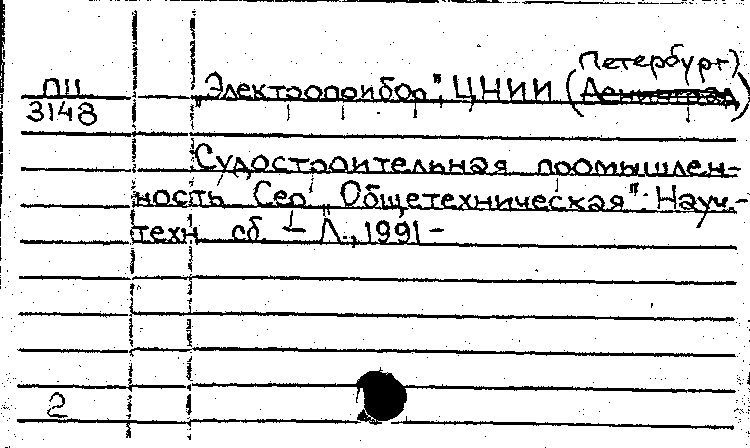 Петербург)
ПII „Электроприбор", ЦНИИ (Ленинград)
3148
Судостроительная промышлен-
ность Сер „Общетехническая": Науч.-
техн сб. – Л., 1991 –
2